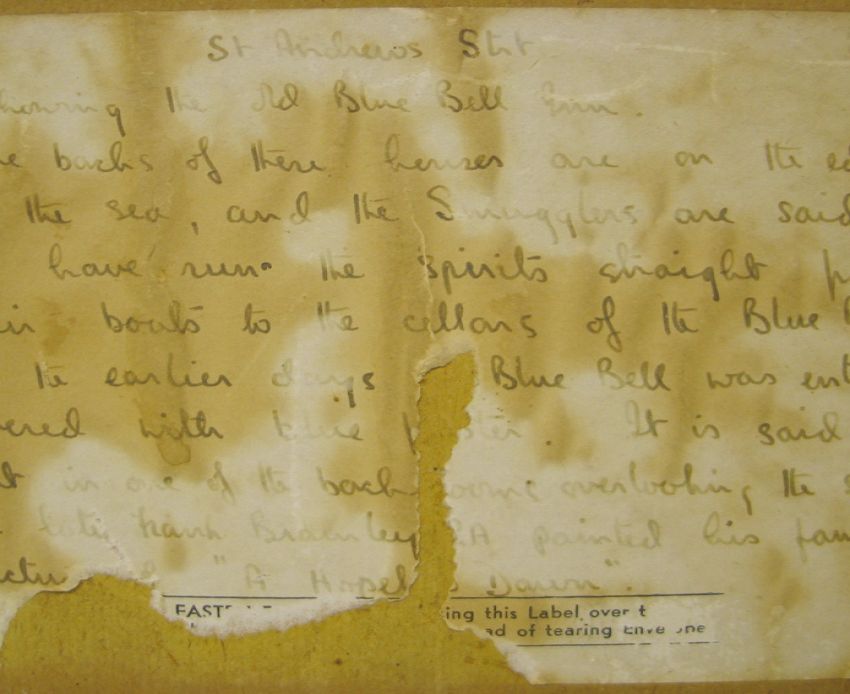 St Andrews Strt
howing the old Blue Bell Inn.
e backs of these houses are on the ed
the sea, and the Smugglers are said
have run the spirits straight
in boats to the cellars of the Blue
the earlier days Blue Bell was ent
ered with blue
. It is said
t in one of the back ooms overlooking the s
late Frank Bramley RA painted his fam
ctu "A Hopel s Dawn".
EAST ing this Label over t
ad of tearing Enve ope